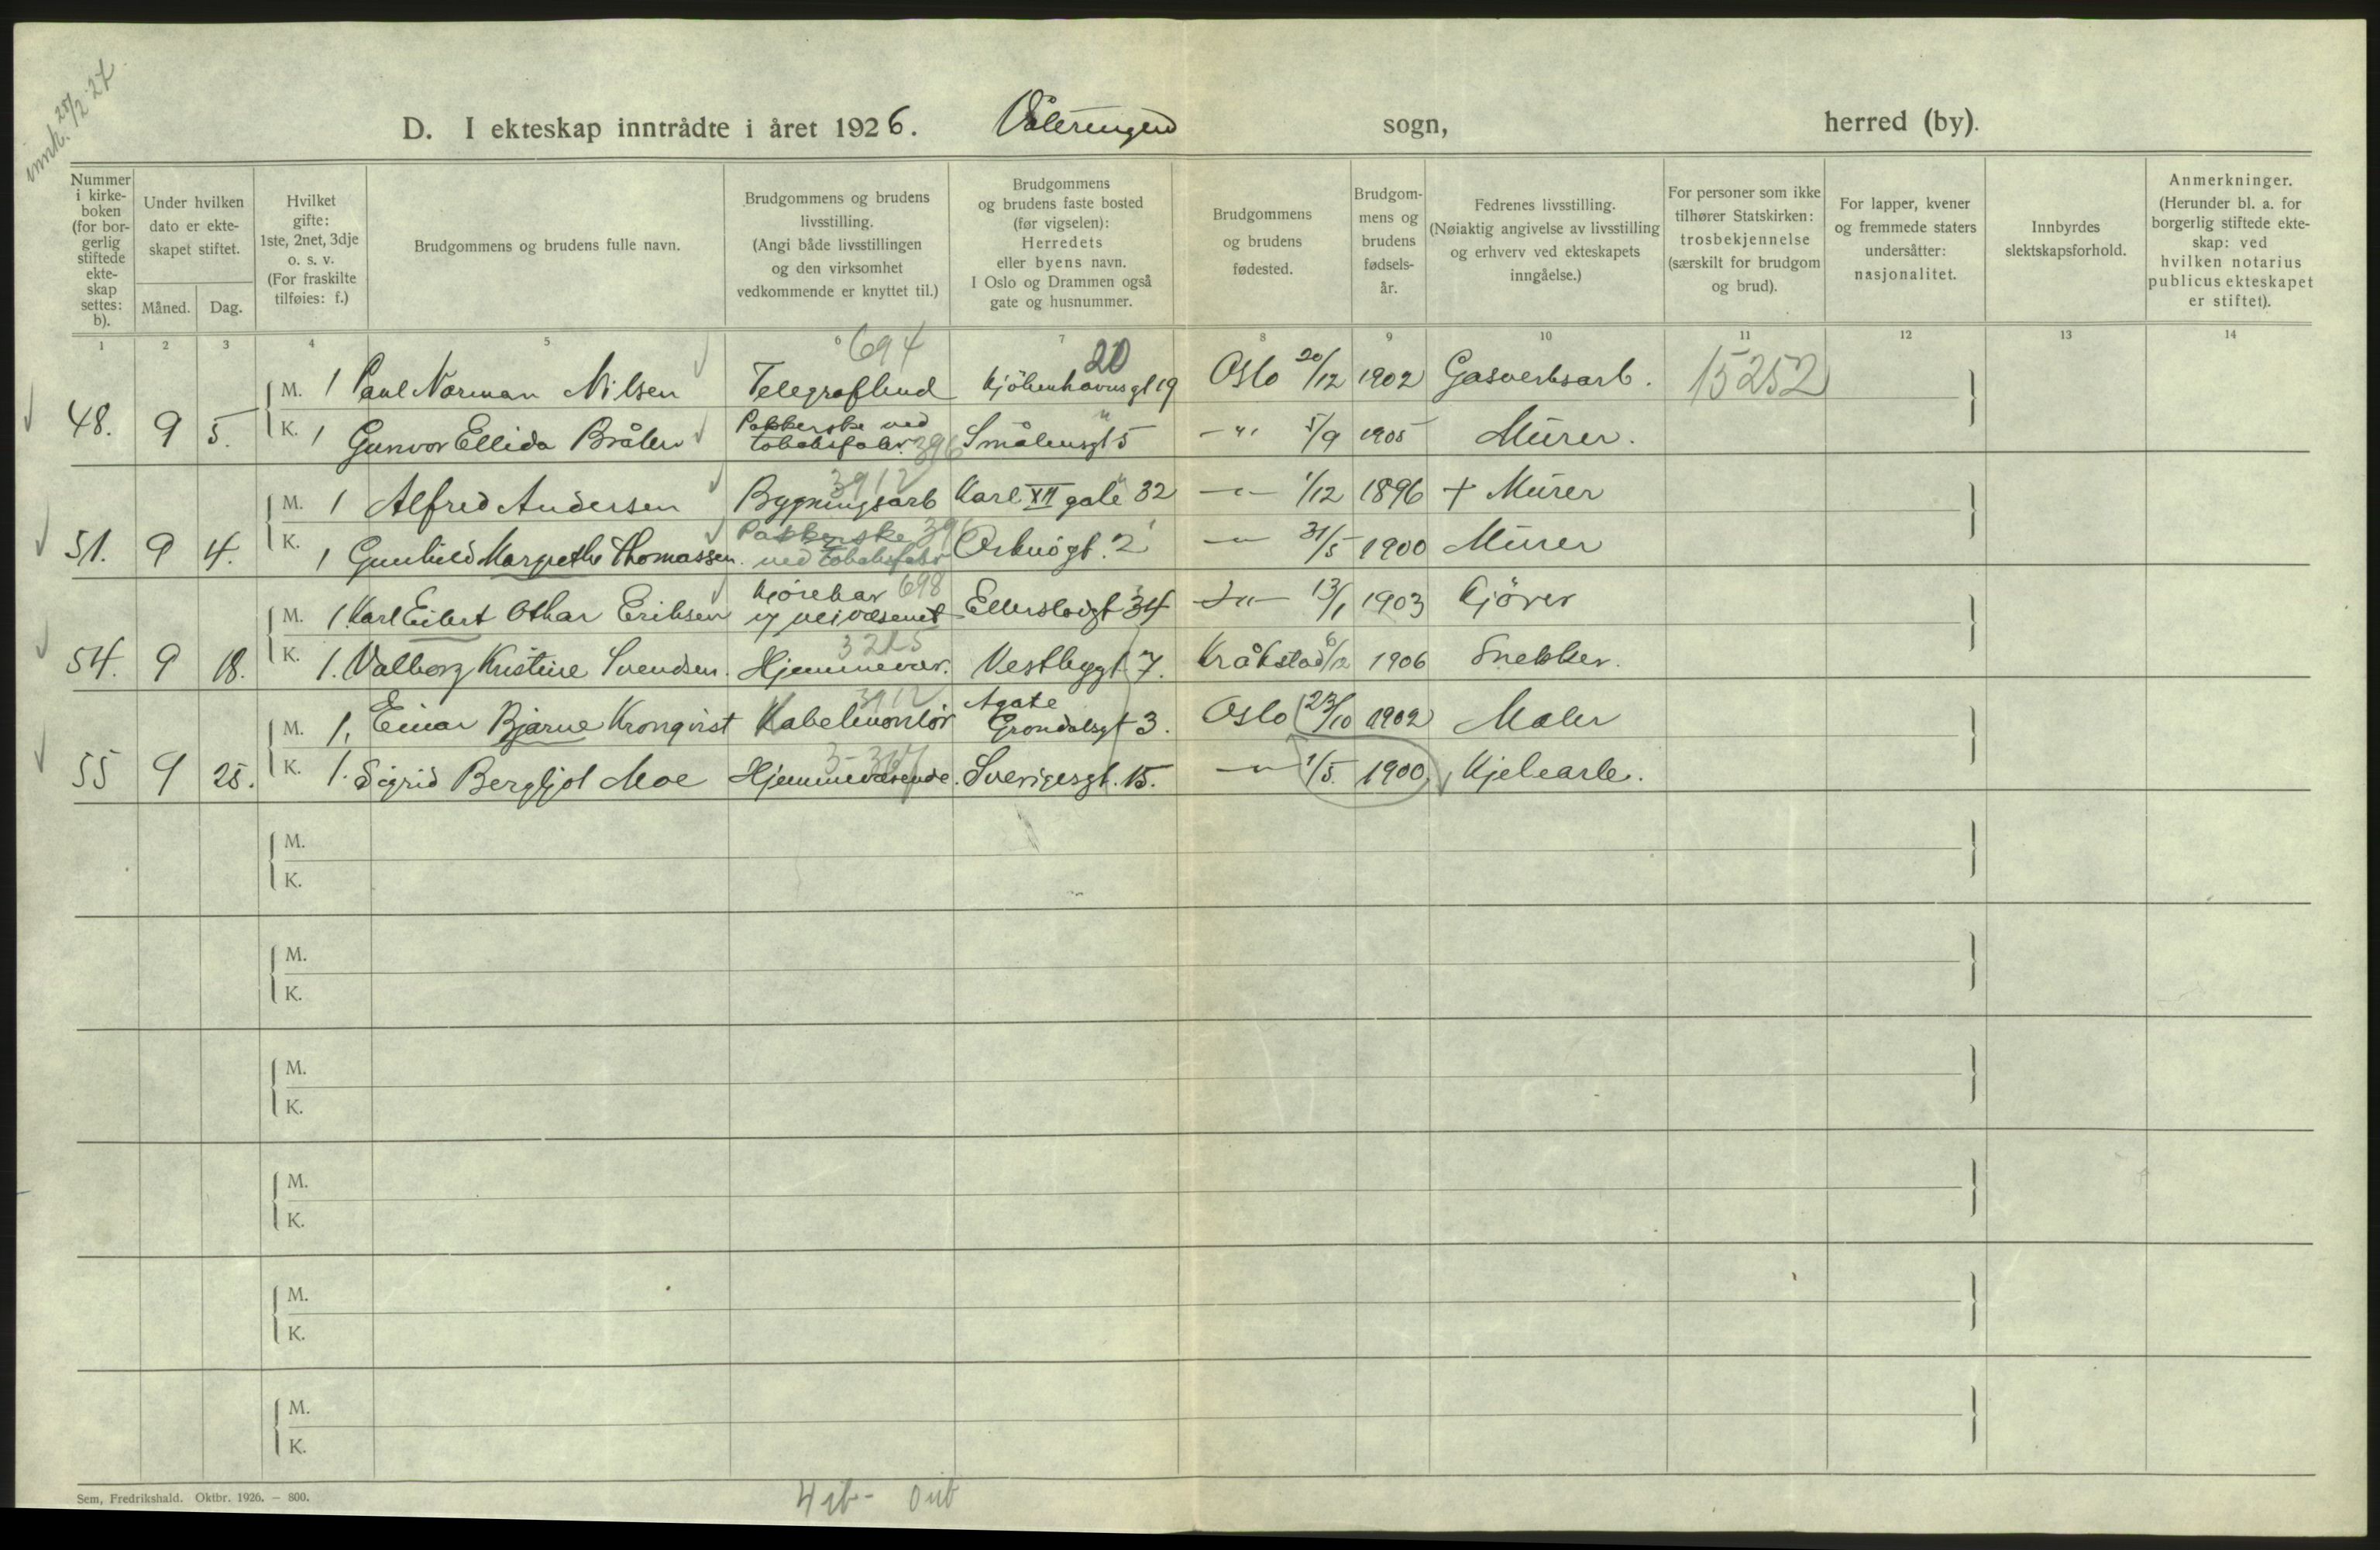 innk. 25/2 27
D. I ekteskap inntrådte i året 1926. Vålerengen sogn, herred (by).
Nummer i kirkeboken (for borgerlig stiftede ekteskap settes: b).
Under hvilken dato er ekteskapet stiftet.
Måned. Dag.
Hvilket gifte: 1ste, 2net, 3dje o. s. v. (For fraskilte tilføies: f.)
Brudgommens og brudens fulle navn.
Brudgommens og brudens livsstilling. (Angi både livsstillingen og den virksomhet vedkommende er knyttet til.)
Brudgommens og brudens faste bosted (før vigselen): Herredets eller byens navn. I Oslo og Drammen også gate og husnummer.
Brudgommens og brudens fødested.
Brudgommens og brudens fødselsår.
Fedrenes livsstilling. (Nøiaktig angivelse av livsstilling og erhverv ved ekteskapets inngåelse.)
For personer som ikke tilhører Statskirken: trosbekjennelse (særskilt for brudgom og brud).
For lapper, kvener og fremmede staters undersåtter: nasjonalitet.
Innbyrdes slektskapsforhold.
Anmerkninger. (Herunder bl. a. for borgerlig stiftede ekteskap: ved hvilken notarius publicus ekteskapet er stiftet).
1 2 3 4 5 6 7 8 9 10 11 12 13 14
694 20
48. 9 5. M. 1 Paul Norman Nilsen Telegrafbud Kjöbenhavnsgt 19 Oslo 20/12 1902 Gasverksarb. 15252
K. 1 Gunvor Ellida Bråten Pakkerske ved tobaksfabr. 396 Smålensgt 5 -"- 5/9 1905 Murer.
3912
51. 9 4. M. 1 Alfred Andersen Bygningsarb Karl XII gate 32 -"- 1/12 1896 + Murer
K. 1 Gunhild Margrethe Thomassen. Pakkerske ved tobaksfabr 396 Orknögt. 2 -"- 31/5 1900 Murer
54. 9 18. M. 1 Karl Eilert Othar Eriksen Kjörekar 698 v/ veivæsenet Ellerslevgt 34 -"- 13/1 1903 Kjörer
3215
K. 1. Valborg Kristine Svendsen. Hjemmevær. Vestbygt 7. Kråkstad 6/12 1906 Snekker.
3912
55 9 25. M. 1. Einar Bjarne Kronqvist Kabelmontör Agate Grøndalsgt 3. Oslo 23/10 1902 Maler
K. 1. Sigrid Bergljot Moe Hjemmeværende. Sverigesgt. 15. -"- 1/5 1900 Kjelearb.
M.
K.
M.
K.
M.
K.
M.
K.
M.
K.
M.
K.
Sem, Fredrikshald. Oktbr. 1926. — 800.
4 ib- 0 ub